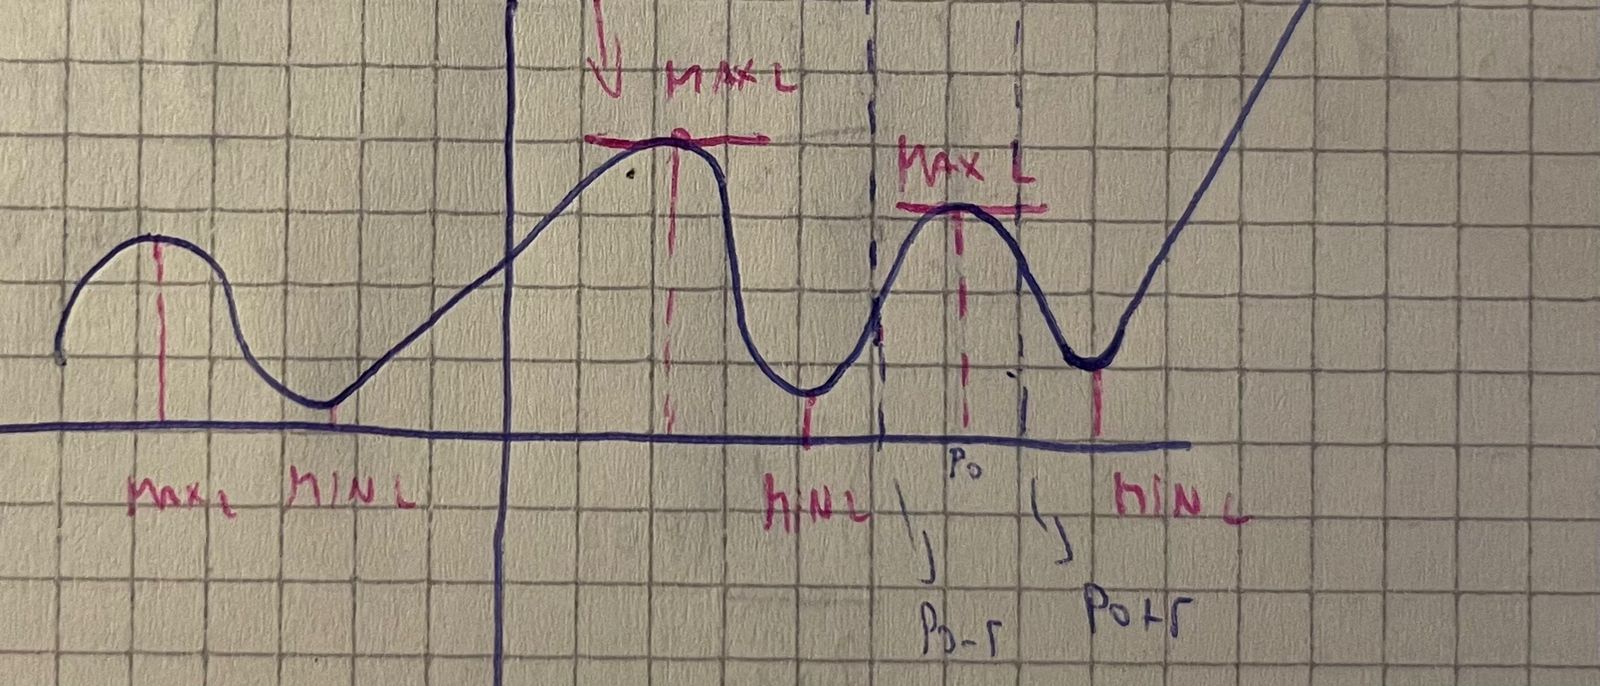 MAX L
MAX L
P0
MAX L MIN L MIN L MIN L
P0-r P0+r